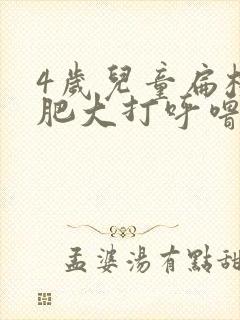 4歲兒童扁
肥大打呼嚕
孟婆湯有點甜